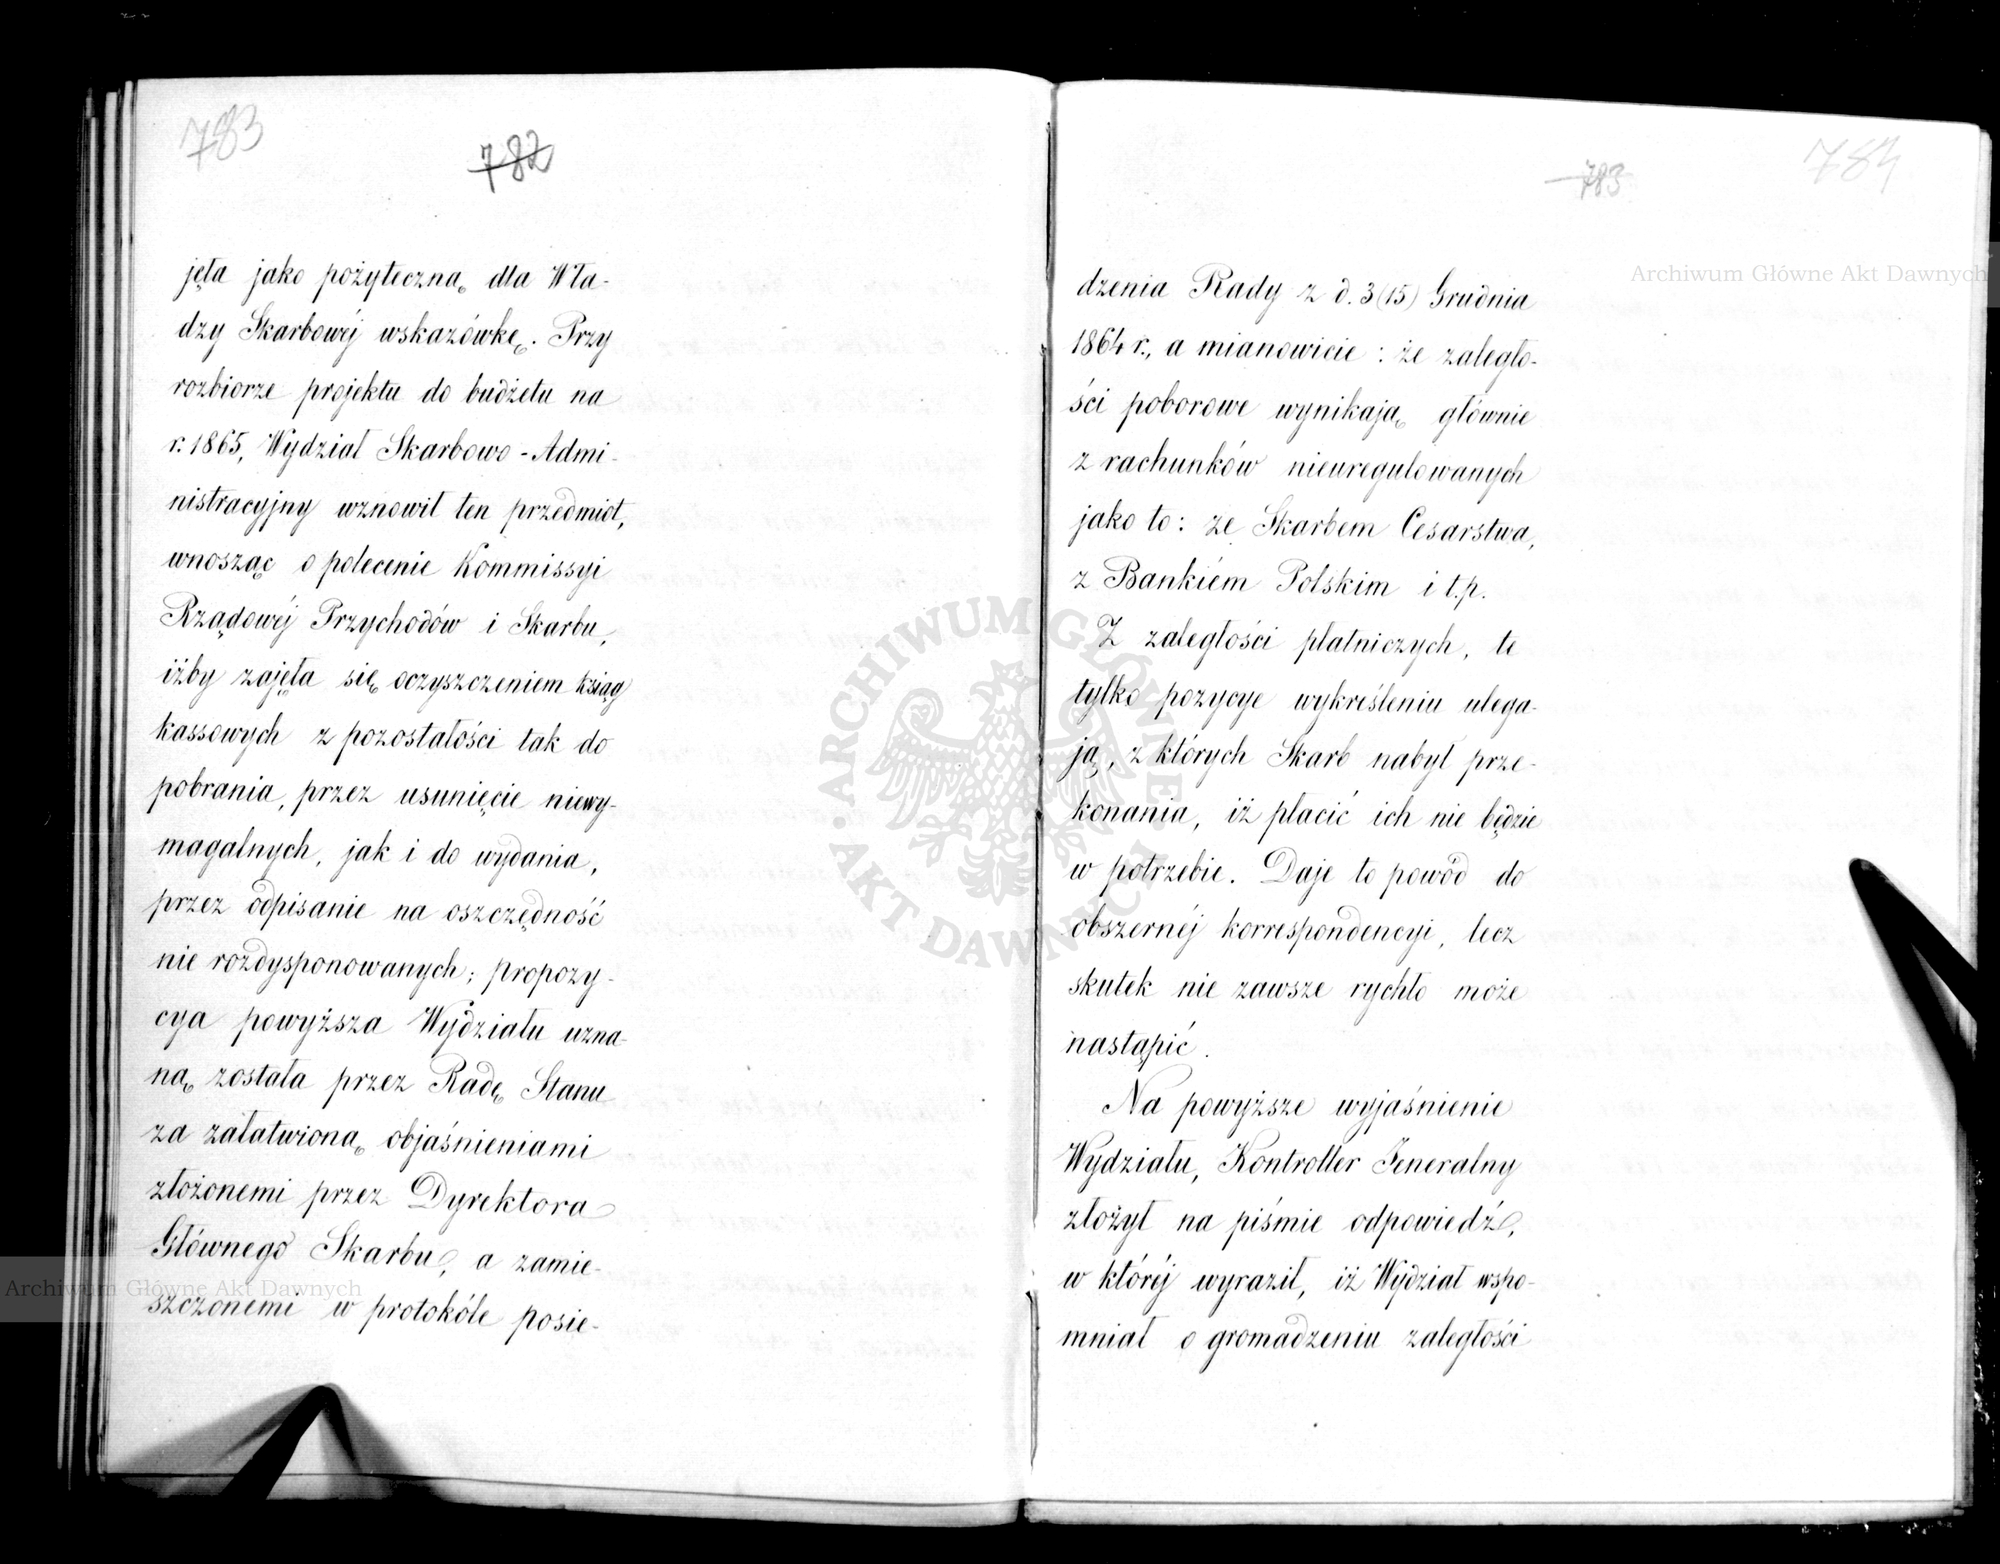 783
782
jęta jako pożyteczną dla Wła-
dzy Skarbowéj wskazówkę. Przy
rozbiorze projektu do budżetu na
r. 1865, Wydział Skarbowo-Admi-
nistracyjny wznowił ten przedmiot,
wnosząc o polecenie Kommissyi
Rządowéj Przychodów i Skarbu,
iżby zajęła się oczyszczeniem ksiąg
kassowych z pozostałości tak do
pobrania, przez usunięcie niewy-
magalnych, jak i do wydania,
przez odpisanie na oszczędność
nie rozdysponowanych; propozy-
cya powyższa Wydziału uzna-
ną została przez Radę Stanu
za załatwioną objaśnieniami
złożonemi przez Dyrektora
Głównego Skarbu, a zamie-
szczonemi w protokóle posie-
783
784
dzenia Rady z d. 3(15) Grudnia
1864 r., a mianowicie: że zaległo-
ści poborowe wynikają głównie
z rachunków nieuregulowanych
jako to: ze Skarbem Cesarstwa,
z Bankiem Polskim i t.p.
Z zaległości płatniczych, te
tylko pozycye wykreśleniu ulega-
ją, z których Skarb nabył prze-
konania, iż płacić ich nie będzie
w potrzebie. Daje to powód do
obszernéj korrespondencyi, lecz
skutek nie zawsze rychło może
nastąpić.
Na powyższe wyjaśnienie
Wydziału, Kontroller Jeneralny
złożył na piśmie odpowiedź,
w któréj wyraził, iż Wydział wspo-
mniał o gromadzeniu zaległości
Archiwum Główne Akt Dawnych
Archiwum Główne Akt Dawnych
ARCHIWUM GŁÓWNE AKT DAWNYCH